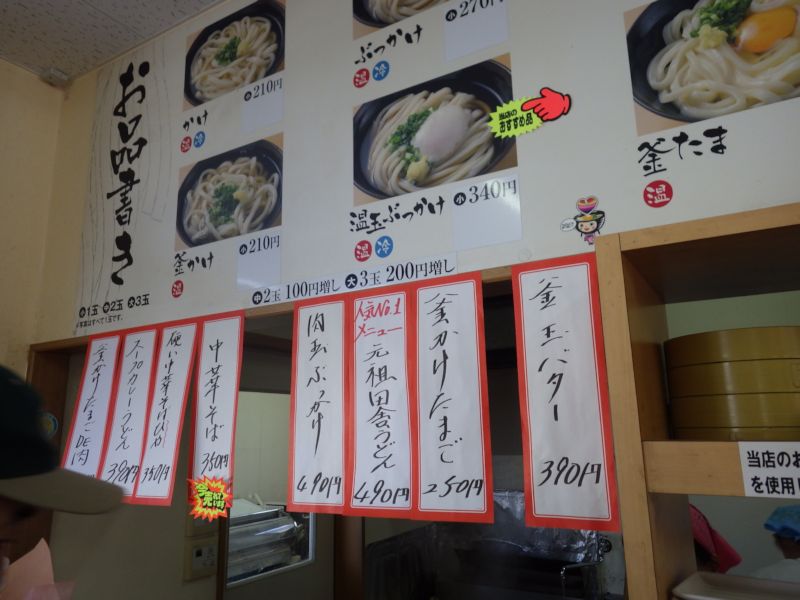 お品書き
小1玉 中2玉 大3玉
※写真はすべて1玉です。
小210円
かけ
温 冷
小210円
釜かけ
温
小270円
ぶっかけ
温 冷
当店の
おすすめ品
小340円
温玉ぶっかけ
温 冷
釜たま
温
中2玉 100円増し
大3玉 200円増し
釜かけたまご
スープカレーうどん
390円
350円
中華そば
350円
肉玉ぶっかけ
490円
人気No.1
メニュー
元祖田舎うどん
490円
釜かけたまご
250円
釜玉バター
390円
当店のお
を使用